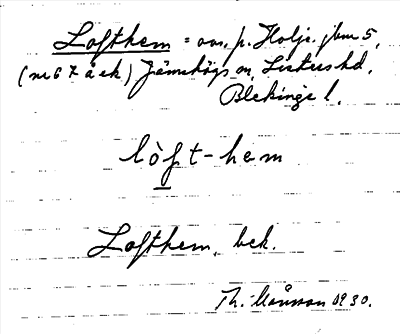 Lofthem = avs. p. Holje. jbm 5,
(nr 67 åek) Jämshögs sn, Listers hd.
Blekinge l.
lòft-hem
Lofthem, bek.
Th. Månsson 1930.